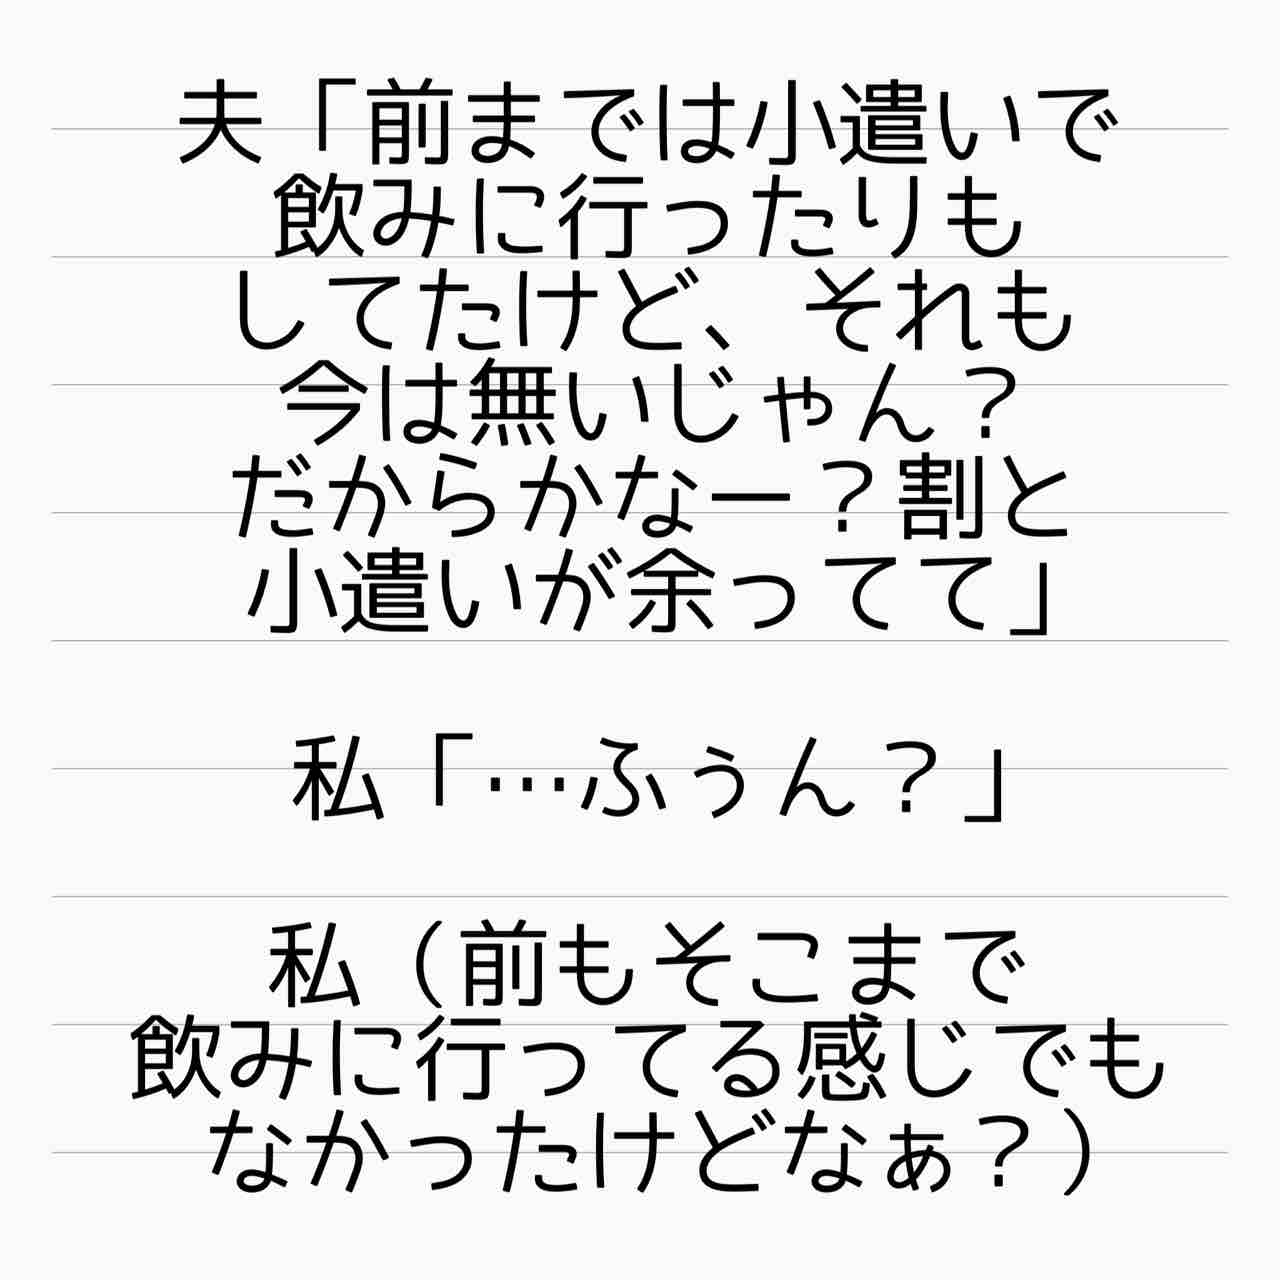 夫「前までは小遣いで
飲みに行ったりも
してたけど、それも
今は無いじゃん？
だからかなー？割と
小遣いが余ってて」
私「…ふぅん？」
私（前もそこまで
飲みに行ってる感じでも
なかったけどなぁ？）